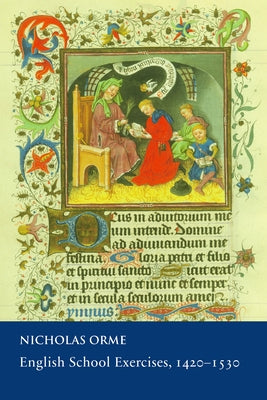 Deus in adiutorium me
um intende. Domine
ad adiuuandum me
festina. Gloria patri et filio
et spiritui sancto Sicut erat
in principio et nunc et semper
et in secula seculorum amen
NICHOLAS ORME
English School Exercises, 1420–1530